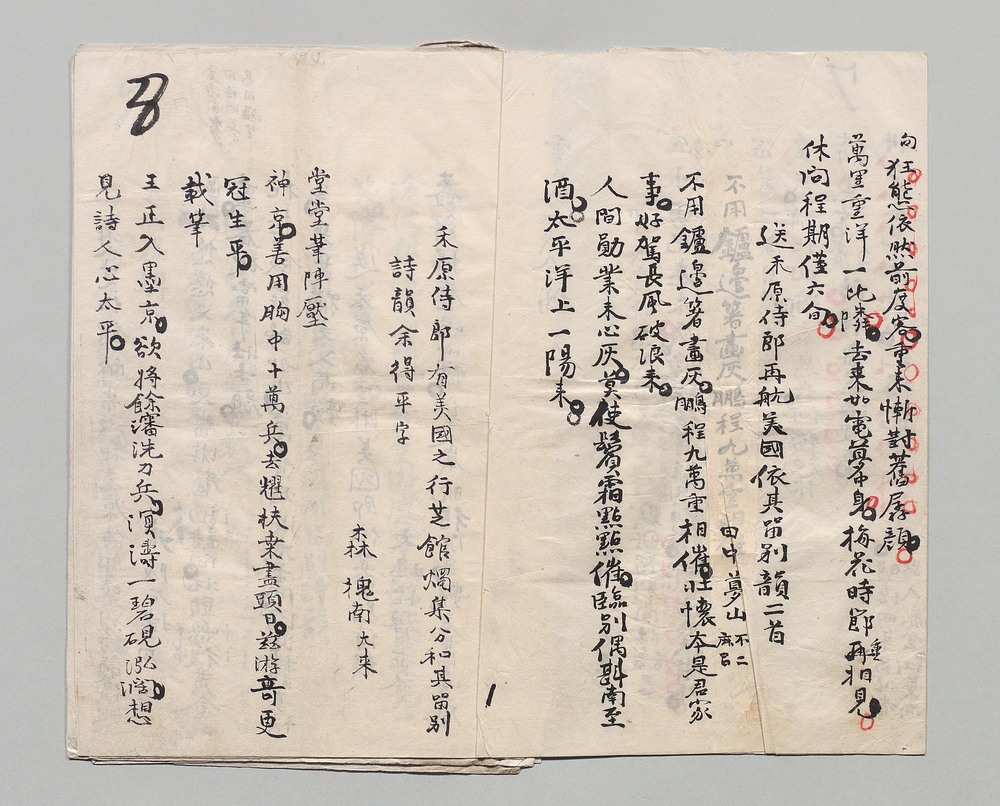 句
狂態依然前度客重来慚對舊孱顔
萬里重洋一比隣去来如電夢中身梅花時節再相見
休向程期僅六旬
送禾原侍郎再航美國依其留別韻二首
田中夢山不二麿
不用鑪邊箸畫灰鵬程九萬重相催壮懐本是君家
事好駕長風破浪来
人間勛業未心灰莫使鬢霜點點催臨別偶斟南至
酒太平洋上一陽来
1
8
禾原侍郎有美國之行芝館燭集分和其留別
詩韻余得平字
森槐南大来
堂堂筆陣壓
神京善用胸中十萬兵去耀扶桒盡頭日茲游奇更
冠生平
載筆
王正入墨京欲将餘瀋洗刀兵溟濤一碧硯泓濶想
見詩人心太平